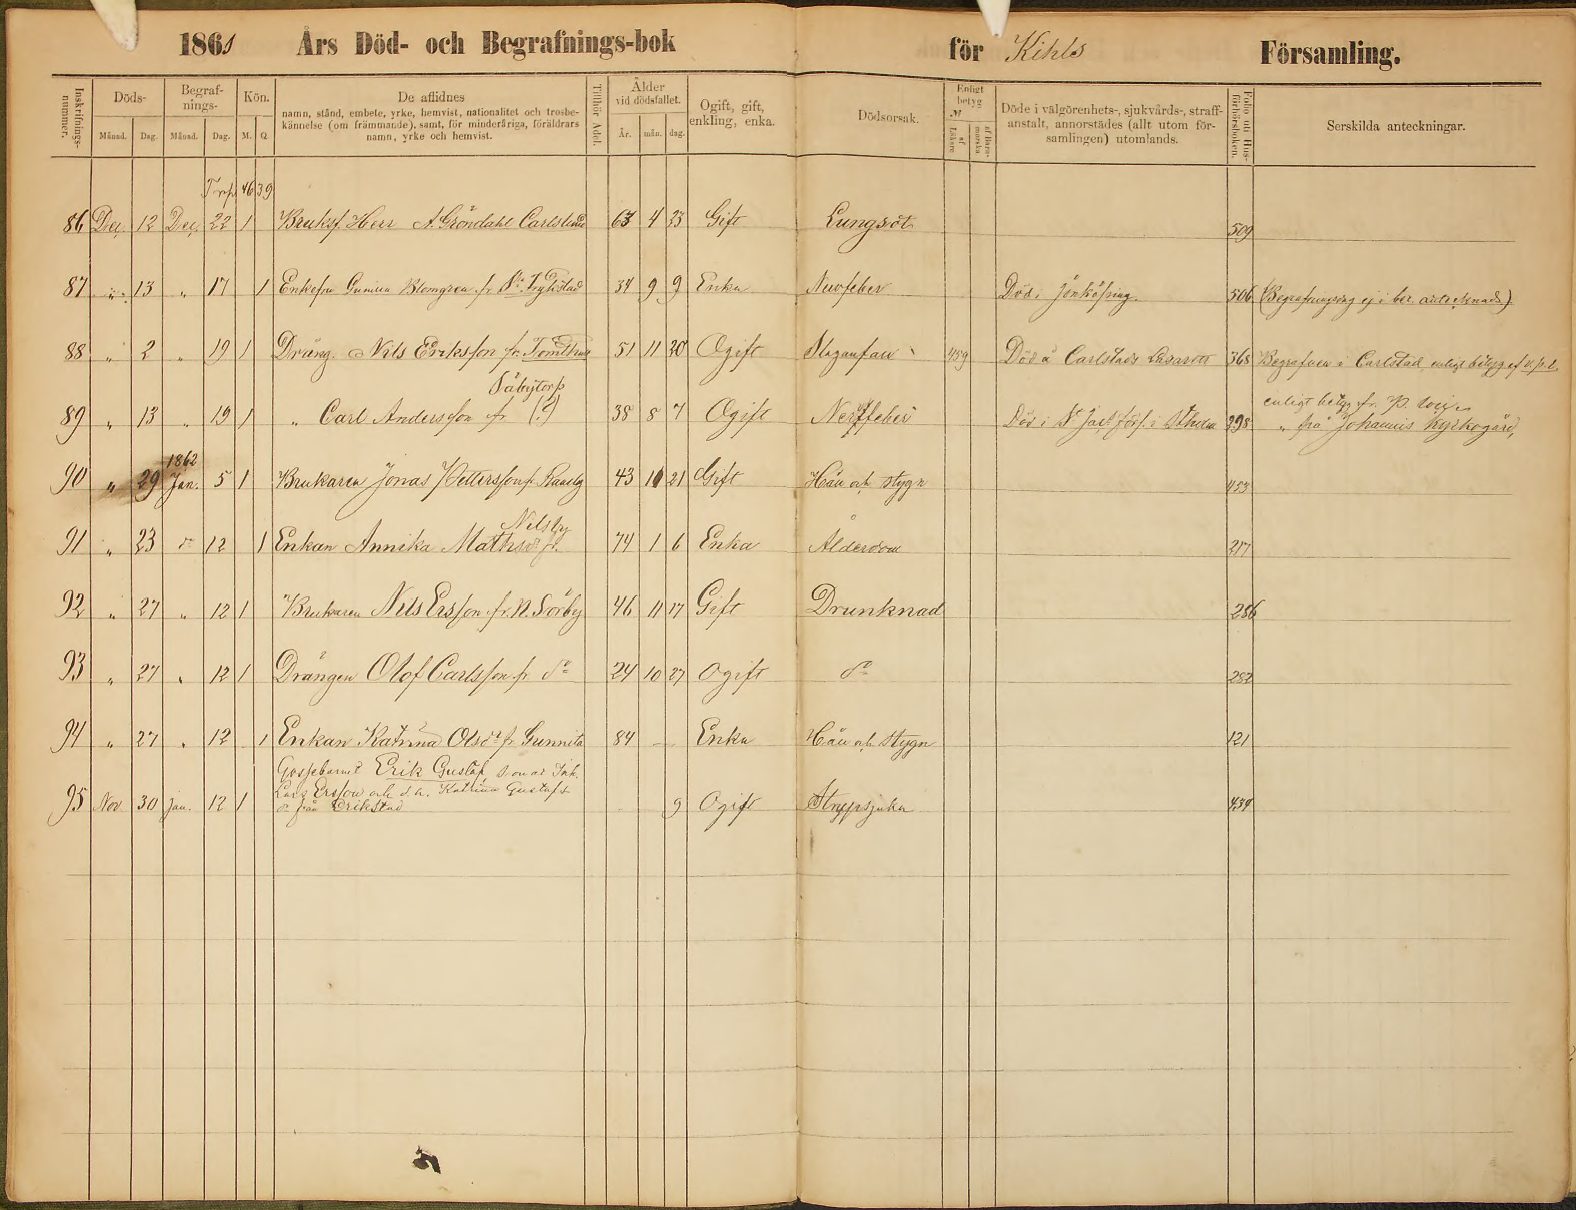 1861 Års Död- och Begrafnings-bok för Kihls Församling.
Inskrifnings-nummer.
Döds-
Månad. Dag.
Begraf-
nings-
Månad. Dag.
Kön.
M. Q.
De aflidnes
namn, stånd, embete, yrke, hemvist, nationalitet och trosbe-
kännelse (om främmande), samt, för minderåriga, föräldrars
namn, yrke och hemvist.
Tillhör Adel.
Ålder
vid dödsfallet.
År. mån. dag.
Ogift, gift,
enkling, enka.
Dödsorsak.
Enligt
betyg
af Läkare
af Barn-morska
Döde i välgörenhets-, sjukvårds-, straff-
anstalt, annorstädes (allt utom för-
samlingen) utomlands.
Folio uti Hus-förhörsboken.
Serskilda anteckningar.
Trp 46 39
86 Dec. 12 Dec. 22 1 Bruksf. Herr A. Gröndahl Carlslund 63 4 23 Gift Lungsot 509
87 " 13 " 17 1 Enkefru Gunilla Blomgren fr. St. Trykstad 34 9 9 Enka Nervfeber Död i Jönköping. 506 (Begrafningsdag ej i bet. antecknad)
88 " 2 " 19 1 Dräng Nils Eriksson fr. 51 11 20 Ogift Slaganfall 459 Död å Carlstads Lasarett 368 Begrafven i Carlstad, enligt betyg af v.p.
Säbytorp
89 " 13 " 19 1 " Carl Andersson fr (?) 38 8 7 Ogift Nerffeber Död i St Jacobs förs. i Sthlm 398 enligt betyg fr.
" från Johannis kyrkogård,
1862
90 " 29 Jan. 5 1 Brukaren Jonas Pettersson fr. 43 10 21 Gift Håll och stygn 453
Nilsby
91 " 23 " 12 1 Enkan Annika Mathsdr fr. 74 1 6 Enka Ålderdom 217
92 " 27 " 12 1 Brukaren Nils Ersson fr. N. Sörby 46 11 17 Gift Drunknad 286
93 " 27 " 12 1 Drängen Olof Carlsson fr. do 24 10 27 Ogift do 282
94 " 27 " 12 1 Enkan Katrina Olsdr fr. Gunnita 84 — Enka Håll och stygn 121
Gossebarnet Erik Gustaf, son af Ink.
95 Nov. 30 Jan. 12 1 Lars Ersson och d.h. Katrina Gustafs- 9 Ogift Strypsjuka 434
dr från Erikstad